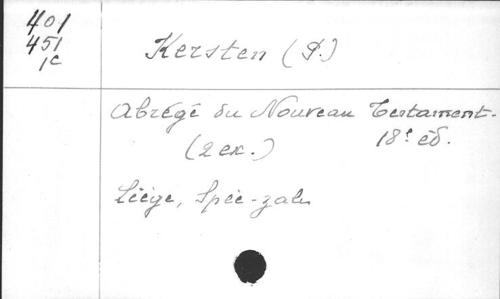 401
451
1C
Kersten (P.)
Abrégé du Nouveau Testament.
(2 ex.) 18e éd.
Liège, Spée-zalm